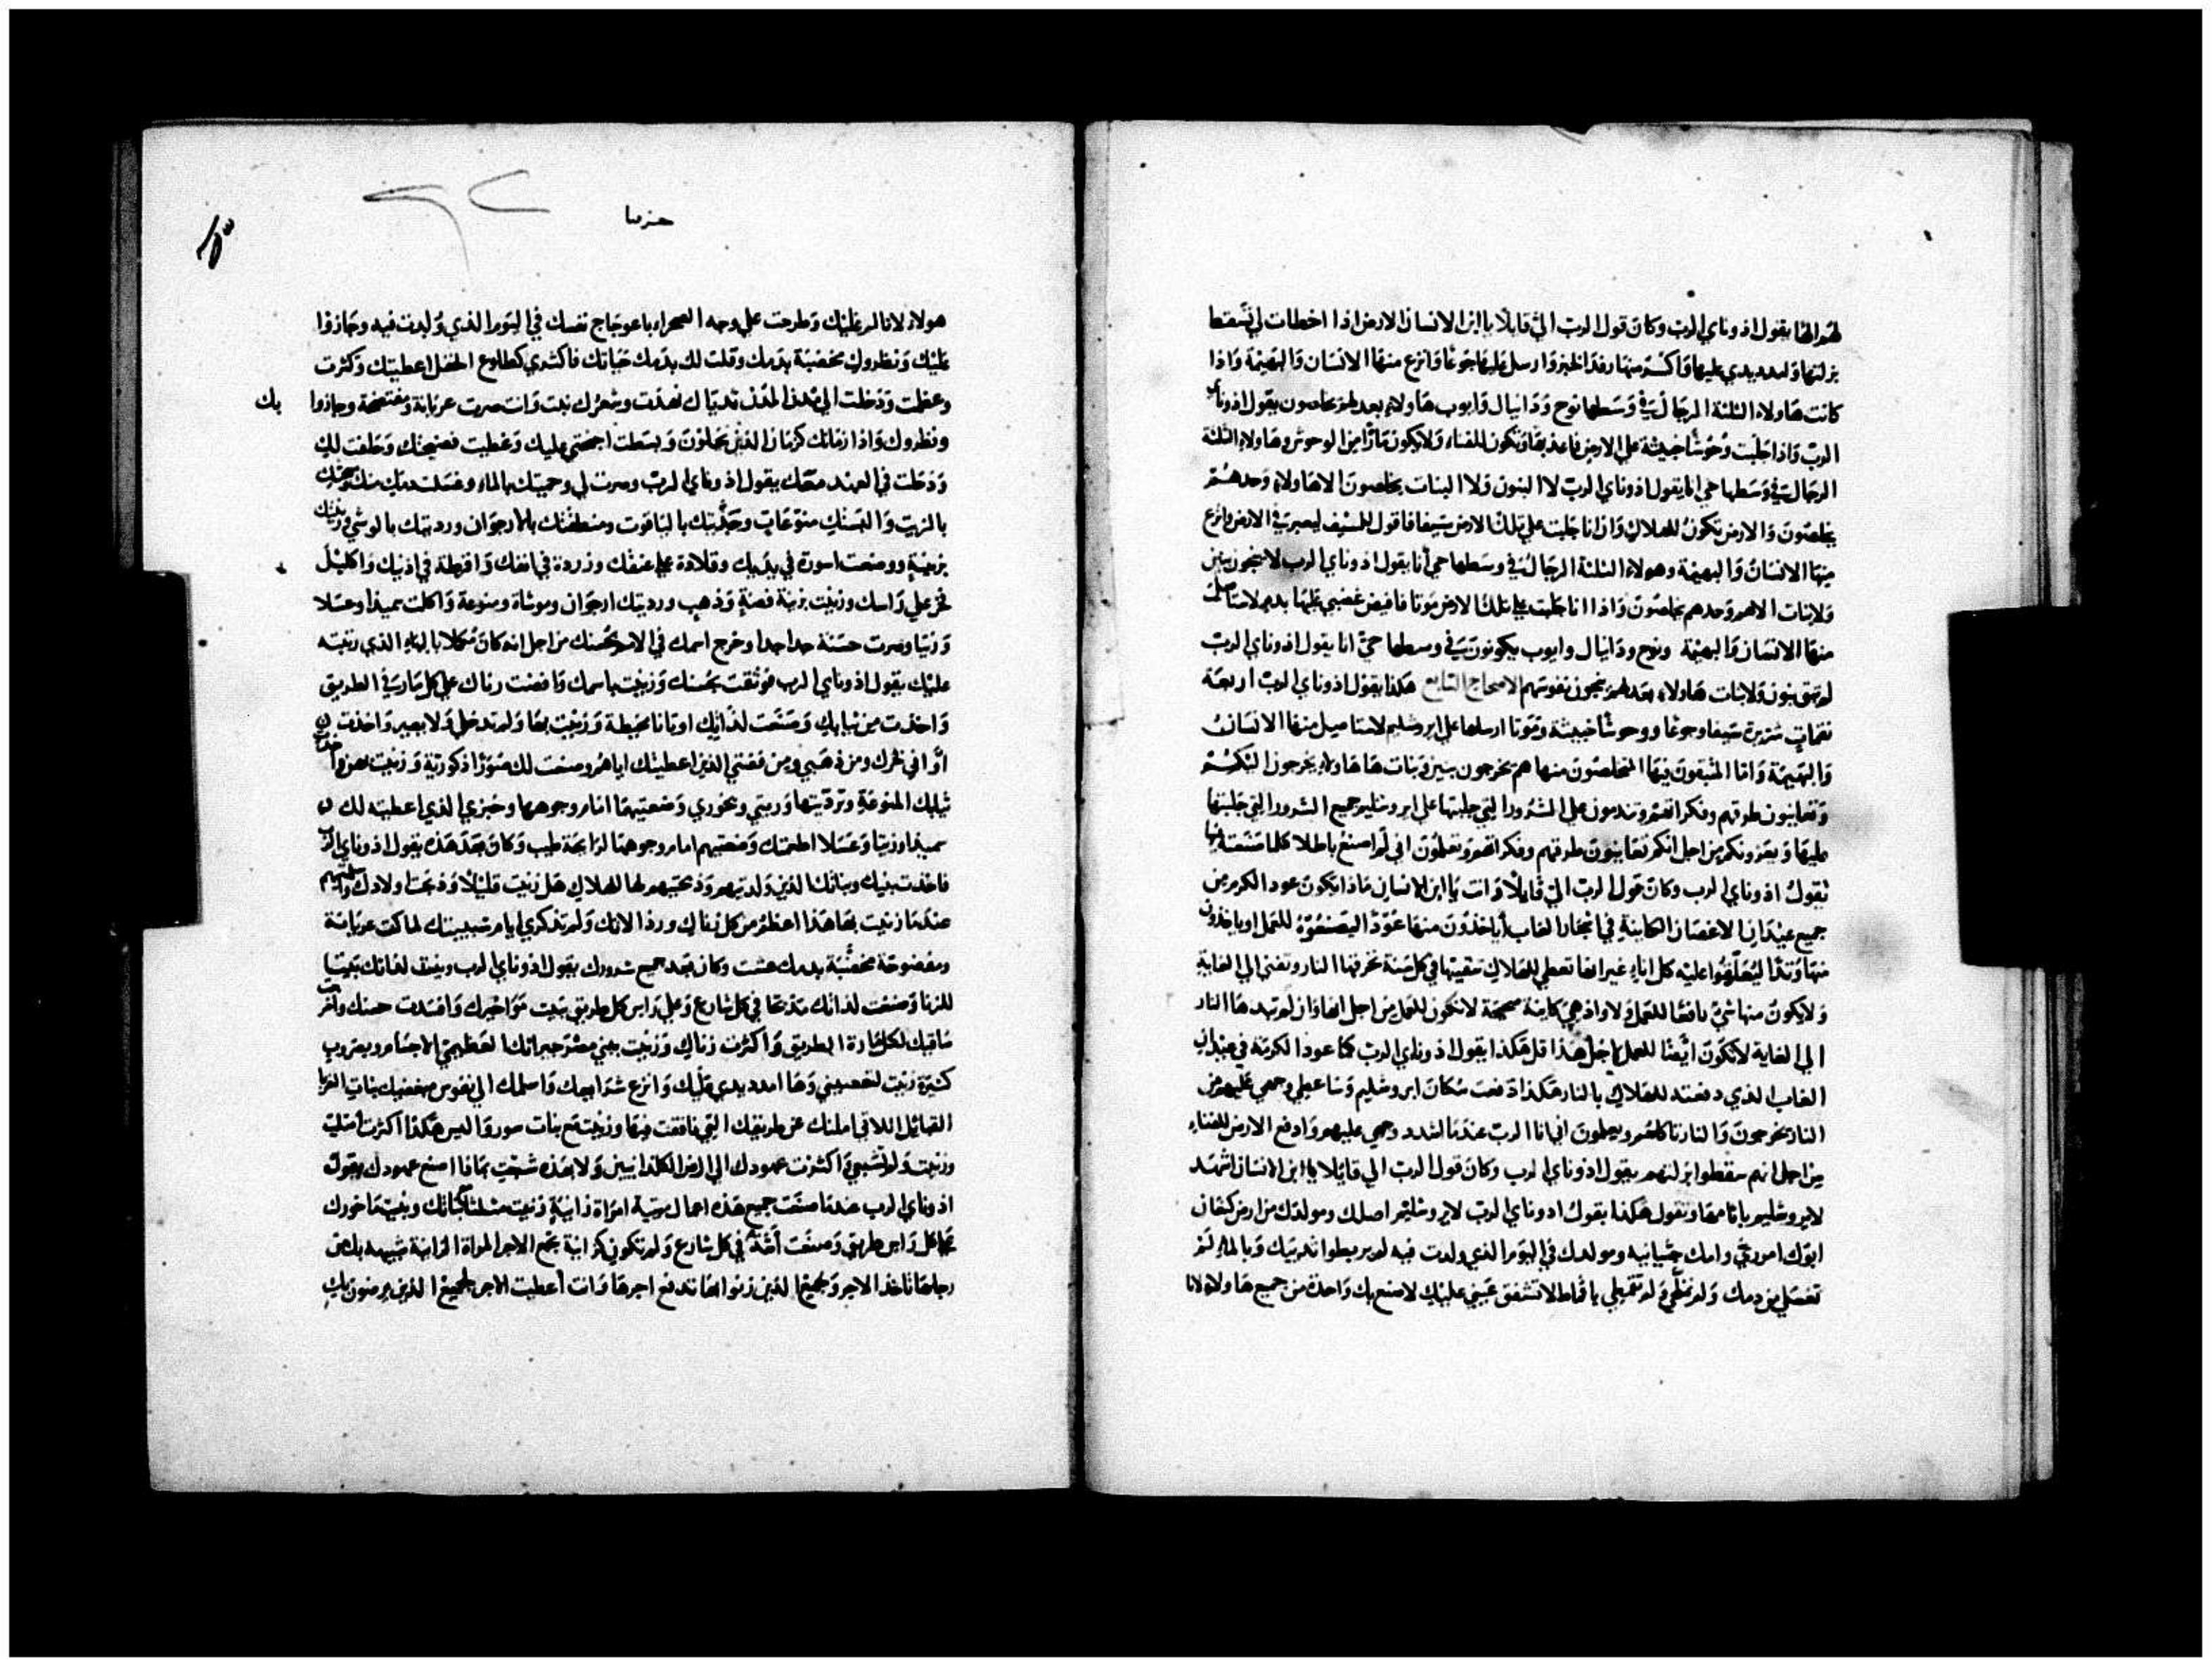 لهم الها يقول اذوناي الرب وكان قول الرب الي قايلا يا ابن الانسان الارض اذا اخطات لي تسقط
بزلتها وامدد يدي عليها واكسر منها رفد الخبز وارسل عليها جوعا وانزع منها الانسان والبهيمة واذا
كانت هاولاء الثلثة الرجال في وسطها نوح ودانيال وايوب هاولاء بعدلهم يخلصون يقول اذوناي
الرب واذا جلبت وحوشا خبيثة علي الارض فاعذبها وتكون للفناء ولا يكون مارا من الوحوش وهاولاء الثلثة
الرجال في وسطها حي انا يقول اذوناي الرب لا البنون ولا البنات يخلصون الا هاولاء وحدهم
يخلصون والارض تكون للهلاك واذا انا جلبت علي تلك الارض سيفا فاقول للسيف ليعبر في الارض وانزع
منها الانسان والبهيمة وهولاء الثلثة الرجال في وسطها حي انا يقول اذوناي الرب لا ينجون بنين
ولا بنات الا هم وحدهم يخلصون واذا انا جلبت علي تلك الارض موتا فافيض غضبي عليها بدم لاستاصل
منها الانسان والبهيمة ونوح ودانيال وايوب يكونون في وسطها حي انا يقول اذوناي الرب
لم يبق بنون ولا بنات هاولاء بعدلهم ينجون نفوسهم الاصحاح التابع هكذا يقول اذوناي الرب اربعة
نقمات شريرة سيفا وجوعا ووحوشا خبيثة وموتا ارسلها علي ايروشليم لاستاصل منها الانسان
والبهيمة واما المتبقون فيها المخلصون منها هم يخرجون بنين وبنات ها هاولاء يخرجون اليكم
وتعاينون طرقهم وفكراتهم وتندمون علي الشرور التي جلبتها علي ايروشليم جميع الشرور التي جلبتها
عليها ويعزونكم من اجل انكم تعاينون طرقهم وفكراتهم وتعلمون اني لم اصنع باطلا كلما صنعته فيها
يقول اذوناي الرب وكان قول الرب الي قايلا وانت يا ابن الانسان ماذا يكون عود الكرم من
جميع عيدان الاغصان الكاينة في اشجار الغاب أياخذون منها عودا ليصنعوه للعمل او ياخذون
منها وتدا ليعلقوا عليه كل اناء غير انها تعطي للهلاك تنقيتها في كل سنة تحرقها النار وتفني الي الغاية
ولا يكون منها شي نافعا للعمل ولا واذ هي كاينة صحيحة لا تكون للعمل من اجل انها وان لم تبدها النار
الي الغاية لا تكون ايضا للعمل لاجل هذا قل هكذا يقول اذوناي الرب كما عود الكرمة في عيدان
الغاب الذي دفعته للهلاك بالنار هكذا دفعت سكان ايروشليم وساعطي وجهي عليهم من
النار يخرجون والنار تاكلهم ويعلمون اني انا الرب عندما اشدد وجهي عليهم وادفع الارض للفناء
من اجل انهم سقطوا بزلتهم يقول اذوناي الرب وكان قول الرب الي قايلا يا ابن الانسان اشهد
لايروشليم باثامها وتقول هكذا يقول اذوناي الرب لايروشليم اصلك ومولدك من ارض كنعان
ابوك اموري وامك حيثيانيه ومولدك في اليوم الذي ولدت فيه لم يربطوا ثدييك وبالماء لم
تغسلي من دمك ولم تملحي ولم تتقمطي باقماط لا تشفق عيني عليك لاصنع بك واحدة من جميع هاولاء لانا
هولاء لاتالم عليك وطرحت علي وجه الصحراء باعوجاج نفسك في اليوم الذي ولدت فيه وجازوا
عليك ونظروك مخضبة بدمك وقلت لك بدمك حياتك فاكثري كطلوع الحقل اعطيتك وكثرت
وعظمت ودخلت الي مدن المدن ثدياك نهدت وشعرك نبت وانت صرت عريانة ومفتضحة وجازوا بك
ونظروك واذا زمانك كزمان الذين يحلون وبسطت اجنحتي عليك وغطيت فضيحتك وحلفت لك
ودخلت في العهد معك يقول اذوناي الرب وصرت لي وحميتك بالماء وغسلت دمك منك ومسحتك
بالزيت والبستك منوعات وحذيتك بالياقوت ومنطقتك بالارجوان ورديتك بالوشي وزينتك
بزينة ووضعت اسورة في يديك وقلادة علي عنقك وزردة في انفك واقرطة في اذنيك واكليل
فخر علي راسك وزينت بزينة فضة وذهب ورديتك ارجوان وموشاة ومنوعة واكلت سميذا وعسلا
وزيتا وصرت حسنة جدا جدا وخرج اسمك في الامم بحسنك من اجل انه كان مكملا بالبهاء الذي رتبته
عليك يقول اذوناي الرب فوثقت بحسنك وزنيت باسمك وافضت زناك علي كل مار في الطريق
واخذت من ثيابك وصنعت لذاتك اوثانا مخيطة وزنيت بها ولم تدخلي ولا يصير واخذت
اواني فخرك من ذهبي ومن فضتي الذين اعطيتك اياهم وصنعت لك صورا ذكورية وزنيت بهن
ثيابك المنوعة وترديتها وزيتي وبخوري وضعتيهما امام وجوهها وخبزي الذي اعطيته لك
سميذا وزيتا وعسلا اطعمتك وضعتيهم امام وجوهها لرايحة طيب وكان بعد هذه يقول اذوناي الرب
فاخذت بنيك وبناتك الذين ولدتيهم وذبحتيهم لها للهلاك هل زنيت قليلا وذبحت اولادك
عندما زنيت بها هذا اعظم من كل زناك ورذالاتك ولم تذكري ايام شبيبتك لما كنت عريانة
ومفضوحة مخضبة بدمك عشت وكان بعد جميع شرورك يقول اذوناي الرب وبنيت لذاتك بيتا
للزنا وصنعت لذاتك مذبحا في كل شارع وعلي راس كل طريق بنيت مواخيرك وافسدت حسنك
ساقيك لكل مار في الطريق واكثرت زناك وزنيت ببني مصر جيرانك العظيمي الاجسام وبضروب
كثيرة زنيت لتغضبيني وها امدد يدي عليك وانزع شرايعك واسلمك الي نفوس مبغضيك بنات
القبائل اللاتي املنك عن طريقك التي نافقت فيها وزنيت مع بنات سور واليس هكذا اكثرت
وزنيت ولم تشبعي واكثرت عهودك الي ارض الكلدانيين ولا بهذه شبعت بماذا اصنع عهودك يقول
اذوناي الرب عندما صنعت جميع هذه اعمال امراة زانية زنيت مثلثا ببناتك وبنيت ماخورك
علي كل راس طريق وصنعت في كل شارع ولم تكوني كزانية تجمع الاجر المراة الزانية
رجلها تاخذ الاجر وجميع الذين زنوا بها تدفع اجرها وانت أعطيت الاجر لجميع الذين يرضون بك